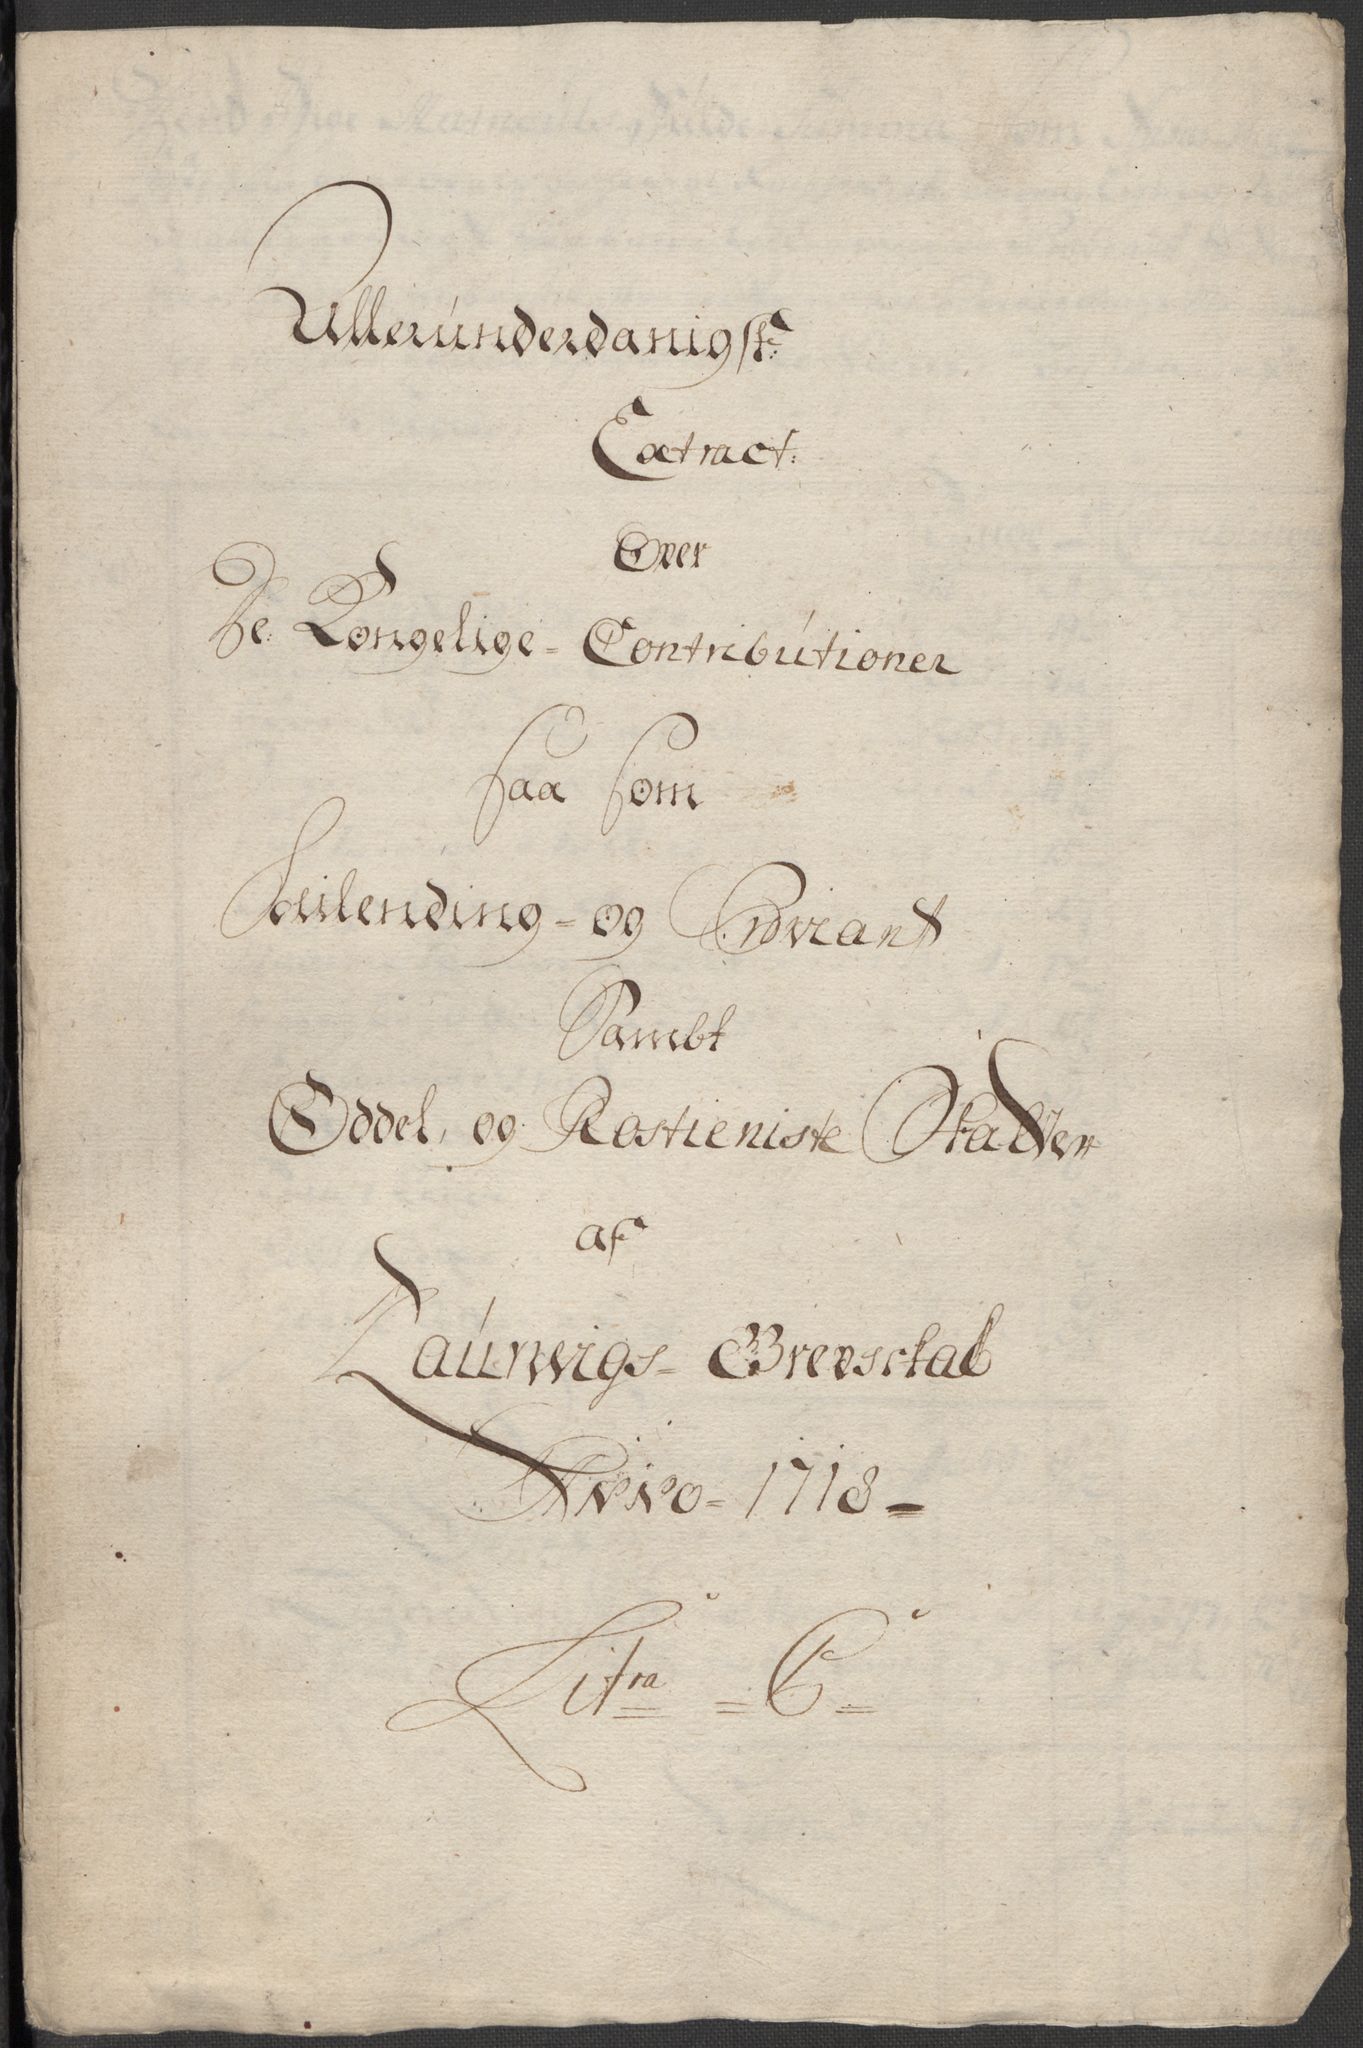 Allerúnderdanigst
Extract:
Over
De Kongelige- Contribútioner
saa som
Leilending- og Proviant
Sambt
Oddel, og Rostieniste Skatter
af
Laúrwigs- Grevschab
Anno- 1718-
Litra C